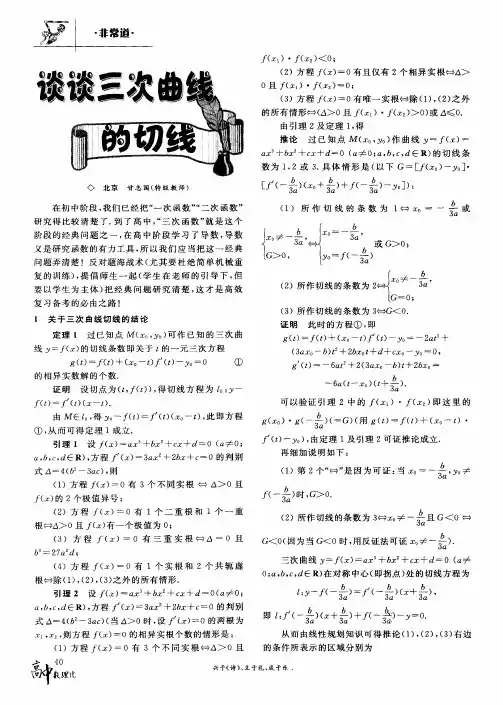 ·非常道·
谈谈三次曲线
的切线
◇ 北京 甘志国(特级教师)
在初中阶段,我们已经把“一次函数”“二次函数”
研究得比较清楚了.到了高中,“三次函数”就是这个
阶段的经典问题之一,在高中阶段学习了导数,导数
又是研究函数的有力工具,所以我们应当把这一经典
问题弄清楚!反对题海战术(尤其要杜绝简单机械重
复的训练),提倡师生一起(学生在老师的引导下,但
要以学生为主体)把经典问题研究清楚,这才是高效
复习备考的必由之路!
1 关于三次曲线切线的结论
定理1 过已知点 M(x₀,y₀)可作已知的三次曲
线 y=f(x)的切线条数即关于 t 的一元三次方程
g(t)=f(t)+(x₀-t)f′(t)-y₀=0 ①
的相异实数解的个数.
证明 设切点为(t,f(t)),得切线方程为 l₀:y-
f(t)=f′(t)(x-t).
由 M∈l₀,得 y₀-f(t)=f′(t)(x₀-t),此即方程
①,从而可得定理1成立.
引理1 设 f(x)=ax³+bx²+cx+d=0 (a≠0;
a,b,c,d∈R),方程 f′(x)=3ax²+2bx+c=0 的判别
式 Δ=4(b²-3ac),则
(1) 方程 f(x)=0 有 3 个不同实根⇔Δ>0 且
f(x)的 2 个极值异号;
(2) 方程 f(x)=0 有 1 个二重根和 1 个一重
根⇔Δ>0 且 f(x)有一个极值为 0;
(3) 方程 f(x)=0 有三重实根⇔Δ=0 且
b³=27a²d;
(4) 方程 f(x)=0 有 1 个实根和 2 个共轭虚
根⇔除(1),(2),(3)之外的所有情形.
引理2 设 f(x)=ax³+bx²+cx+d=0(a≠0;
a,b,c,d∈R),方程 f′(x)=3ax²+2bx+c=0 的判别
式 Δ=4(b²-3ac)(当 Δ>0 时,设 f′(x)=0 的两根为
x₁,x₂,则方程 f(x)=0 的相异实根个数的情形是:
(1) 方程 f(x)=0 有 3 个不同实根⇔Δ>0 且
f(x₁)·f(x₂)<0;
(2) 方程 f(x)=0 有且仅有 2 个相异实根⇔Δ>
0 且 f(x₁)·f(x₂)=0;
(3) 方程 f(x)=0 有唯一实根⇔除(1),(2)之外
的所有情形⇔(Δ>0 且 f(x₁)·f(x₂)>0)或 Δ≤0.
由引理 2 及定理 1,得
推论 过已知点 M(x₀,y₀)作曲线 y=f(x)=
ax³+bx²+cx+d=0 (a≠0;a,b,c,d∈R)的切线条
数为 1,2 或 3.具体情形是(以下 G=[f(x₀)-y₀]·
[f′(-b/3a)(x₀+b/3a)+f(-b/3a)-y₀]):
(1) 所作切线的条数为 1⇔x₀=-b/3a 或
{x₀≠-b/3a, G>0, ⇔ {x₀=-b/3a, y₀=f(-b/3a) 或 G>0;
(2) 所作切线的条数为 2⇔{x₀≠-b/3a, G=0;
(3) 所作切线的条数为 3⇔G<0.
证明 此时的方程①,即
g(t)=f(t)+(x₀-t)f′(t)-y₀=-2at³+
(3ax₀-b)t²+2bx₀t+d+cx₀-y₀=0,
g′(t)=-6at²+2(3ax₀-b)t+2bx₀=
-6a(t-x₀)(t+b/3a).
可以验证引理 2 中的 f(x₁)·f(x₂)即这里的
g(x₀)·g(-b/3a)(=G)(用 g(t)=f(t)+(x₀-t)·
f′(t)-y₀),由定理 1 及引理 2 可证推论成立.
再细加说明如下:
(1) 第 2 个“⇔”是因为可证:当 x₀=-b/3a,y₀≠
f(-b/3a)时,G>0.
(2) 所作切线的条数为 3⇔x₀≠-b/3a且 G<0⇔
G<0(因为当 G<0 时,用反证法可证 x₀≠-b/3a).
三次曲线 y=f(x)=ax³+bx²+cx+d=0 (a≠
0;a,b,c,d∈R)在对称中心(即拐点)处的切线方程为
l:y-f(-b/3a)=f′(-b/3a)(x+b/3a),
即 l:f′(-b/3a)(x+b/3a)+f(-b/3a)-y=0.
从而由线性规划知识可得推论(1),(2),(3)右边
的条件所表示的区域分别为
40
高中数理化
兴于《诗》,立于礼,成于乐.